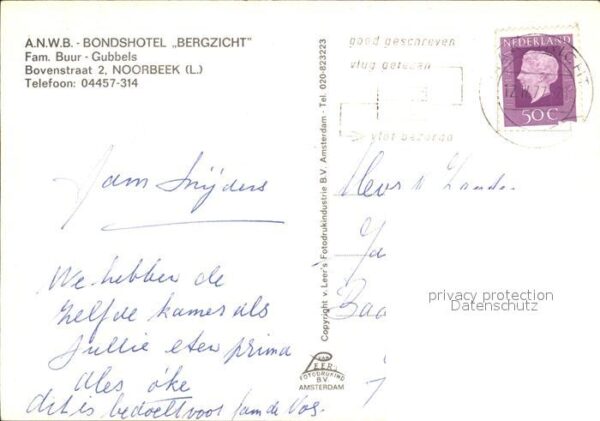 A.N.W.B. - BONDSHOTEL „BERGZICHT"
Fam. Buur - Gubbels
Bovenstraat 2, NOORBEEK (L.)
Telefoon: 04457-314
goed geschreven
vlug gelezen
vlot bezorgd
NEDERLAND
50 C
Copyright v. Leer's Fotodrukindustrie B.V. Amsterdam - Tel. 020-823223
fam Snijders
We hebben de
zelfde kamer als
jullie eten prima
alles oke
dit is bedoelt voor fam de Vos.
Baa
privacy protection
Datenschutz
VAN
LEER'S
FOTODRUKIND
B.V.
AMSTERDAM